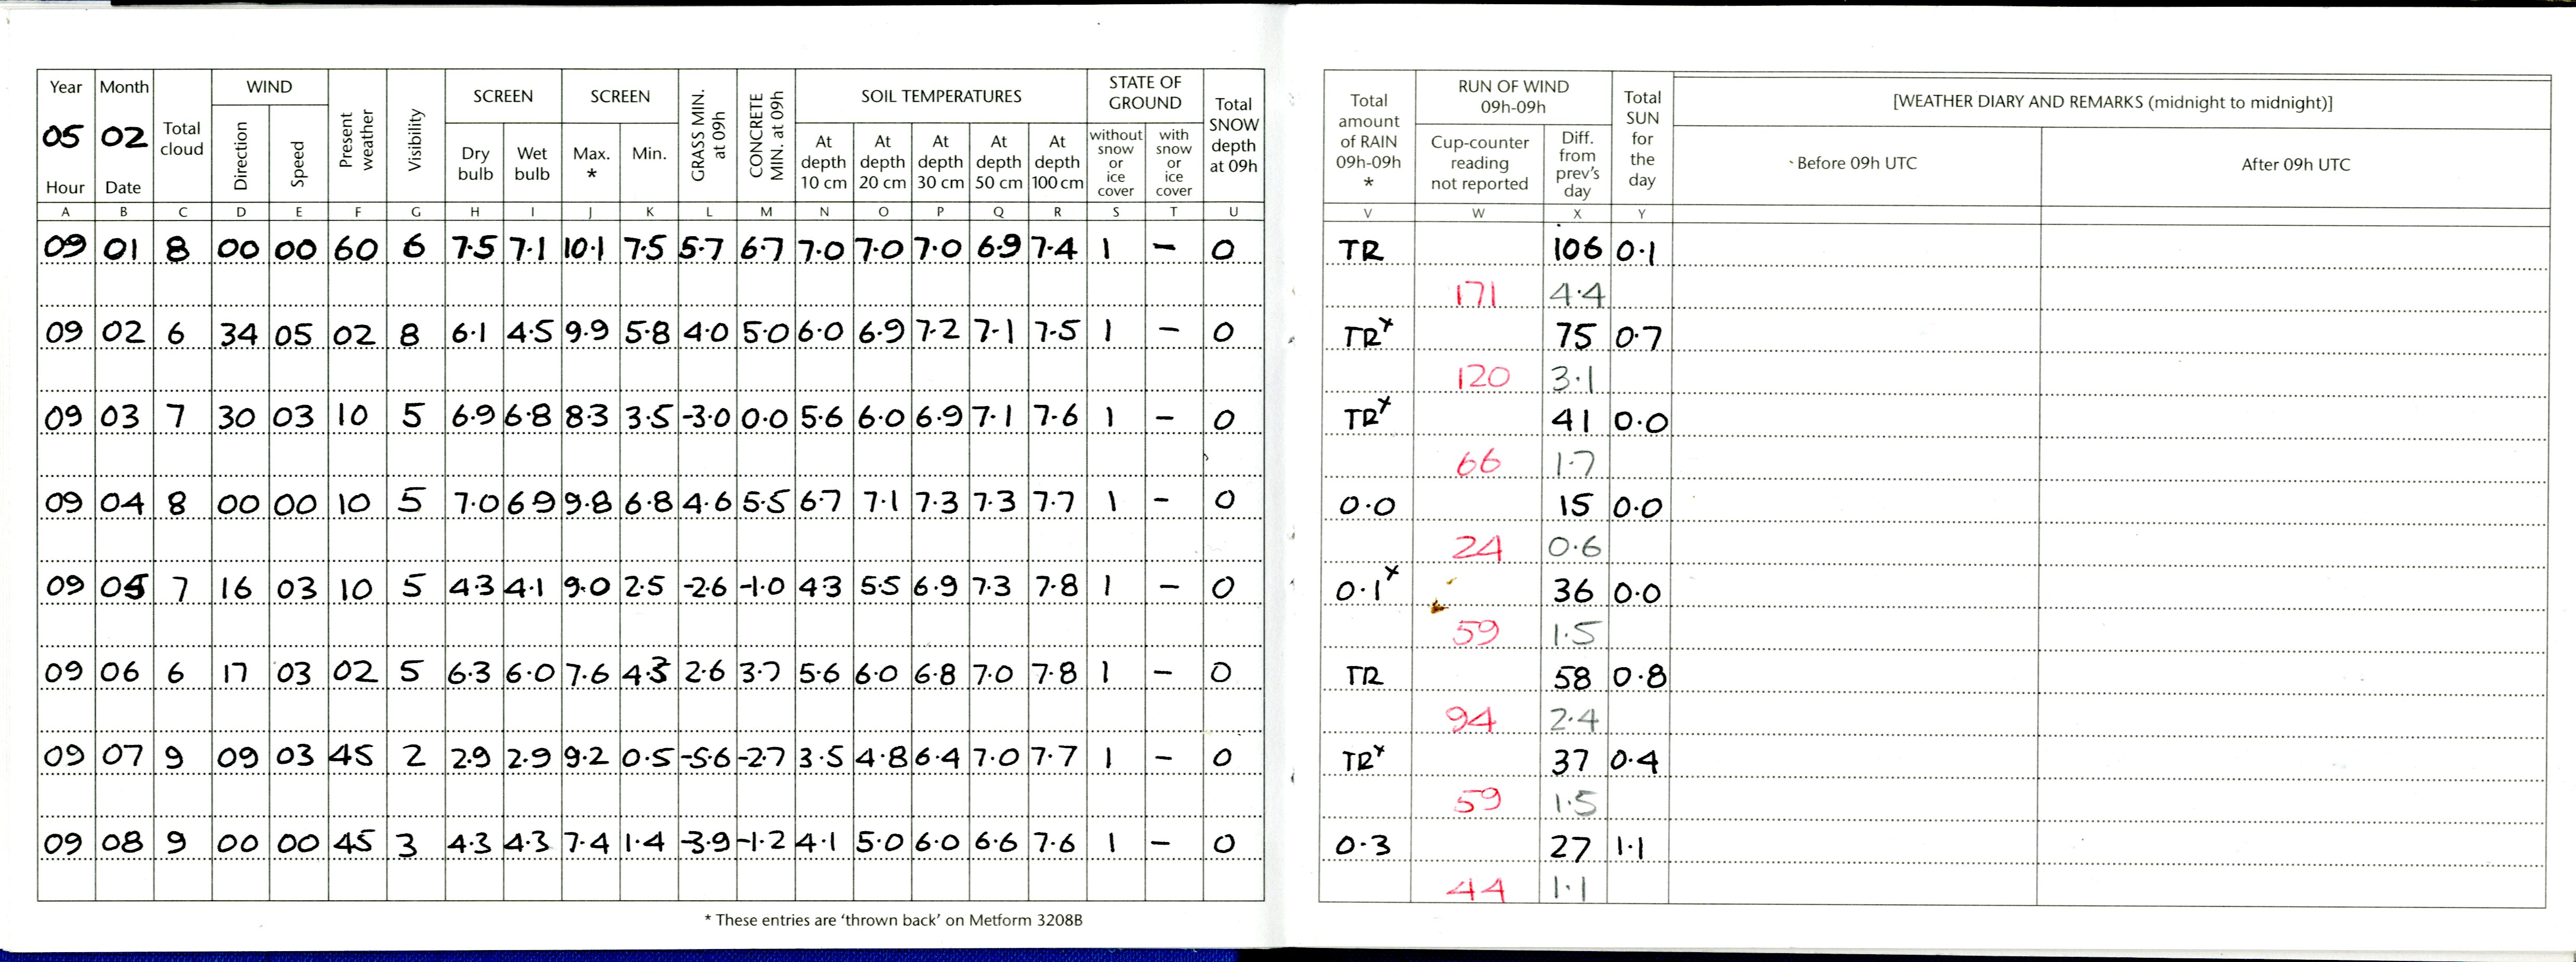 Year Month Total cloud WIND Present weather Visibility SCREEN SCREEN GRASS MIN. at 09h CONCRETE MIN. at 09h SOIL TEMPERATURES STATE OF GROUND Total SNOW depth at 09h
05 02 Direction Speed Dry bulb Wet bulb Max. * Min. At depth 10 cm At depth 20 cm At depth 30 cm At depth 50 cm At depth 100 cm without snow or ice cover with snow or ice cover
Hour Date
A B C D E F G H I J K L M N O P Q R S T U
09 01 8 00 00 60 6 7.5 7.1 10.1 7.5 5.7 6.7 7.0 7.0 7.0 6.9 7.4 1 – 0
09 02 6 34 05 02 8 6.1 4.5 9.9 5.8 4.0 5.0 6.0 6.9 7.2 7.1 7.5 1 – 0
09 03 7 30 03 10 5 6.9 6.8 8.3 3.5 -3.0 0.0 5.6 6.0 6.9 7.1 7.6 1 – 0
09 04 8 00 00 10 5 7.0 6.9 9.8 6.8 4.6 5.5 6.7 7.1 7.3 7.3 7.7 1 – 0
09 05 7 16 03 10 5 4.3 4.1 9.0 2.5 -2.6 -1.0 4.3 5.5 6.9 7.3 7.8 1 – 0
09 06 6 17 03 02 5 6.3 6.0 7.6 4.3 2.6 3.7 5.6 6.0 6.8 7.0 7.8 1 – 0
09 07 9 09 03 45 2 2.9 2.9 9.2 0.5 -5.6 -2.7 3.5 4.8 6.4 7.0 7.7 1 – 0
09 08 9 00 00 45 3 4.3 4.3 7.4 1.4 -3.9 -1.2 4.1 5.0 6.0 6.6 7.6 1 – 0
* These entries are ‘thrown back’ on Metform 3208B
Total amount of RAIN 09h-09h * RUN OF WIND 09h-09h Total SUN for the day [WEATHER DIARY AND REMARKS (midnight to midnight)]
Cup-counter reading not reported Diff. from prev's day Before 09h UTC After 09h UTC
V W X Y
TR 106 0.1
171 4.4
TRx 75 0.7
120 3.1
TRx 41 0.0
66 1.7
0.0 15 0.0
24 0.6
0.1x 36 0.0
59 1.5
TR 58 0.8
94 2.4
TRx 37 0.4
59 1.5
0.3 27 1.1
44 1.1